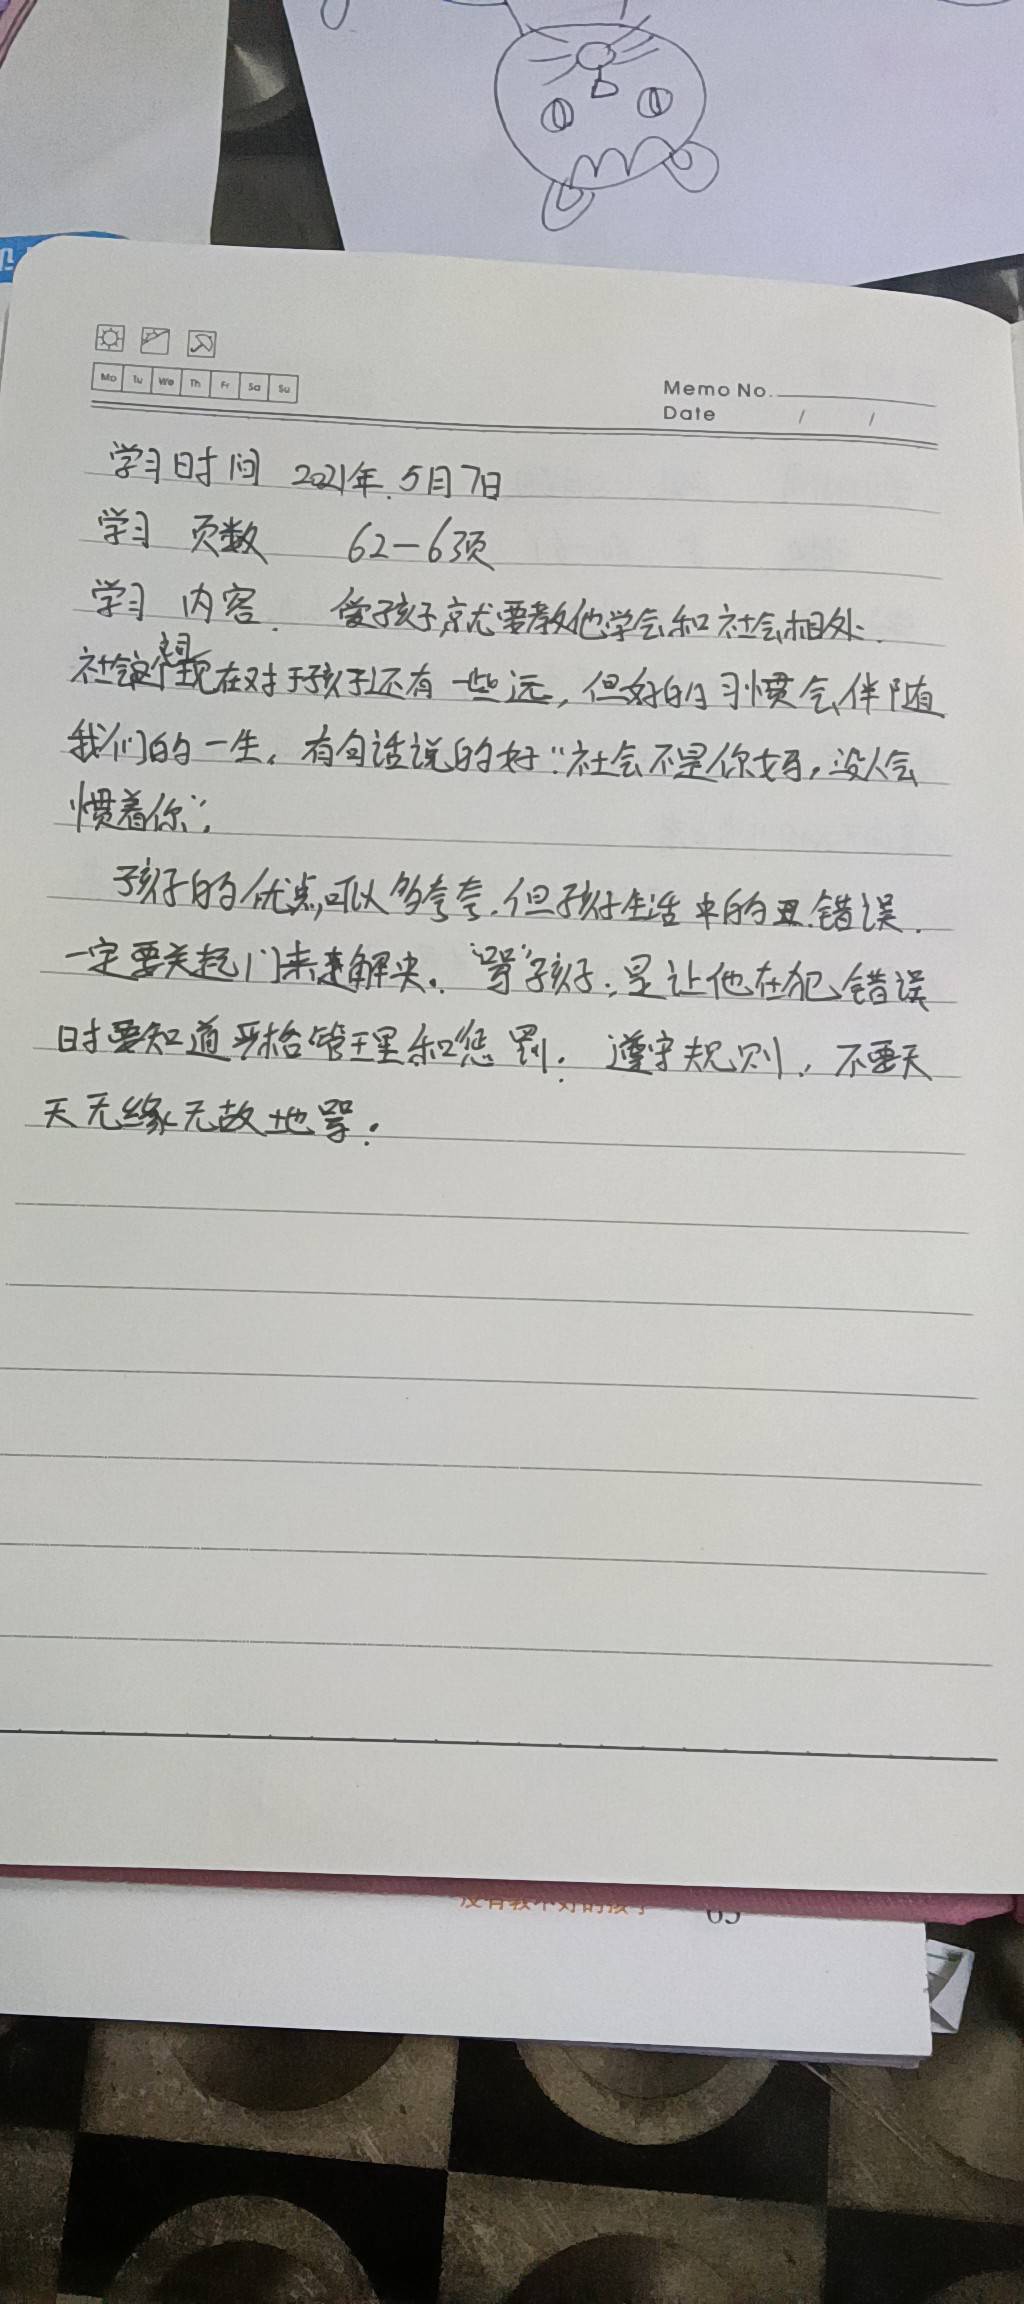 Mo Tu We Th Fr Sa Su
Memo No.
Date / /
学习时间 2021年.5月7日
学习 页数 62-63页
学习 内容. 爱孩子,就要教他学会和社会相处.
社会这个题现在对于孩子还有一些远,但好的习惯会伴随
我们的一生。有句话说的好“社会不是你妈,没人会
惯着你”,
孩子的优点,可以多夸夸.但孩子生活中的错误.
一定要关起门来解决。“骂”孩子,是让他在犯错误
时要知道严格管理和惩罚. 遵守规则,不要天
天无缘无故地骂.
没有教不好的孩子 65